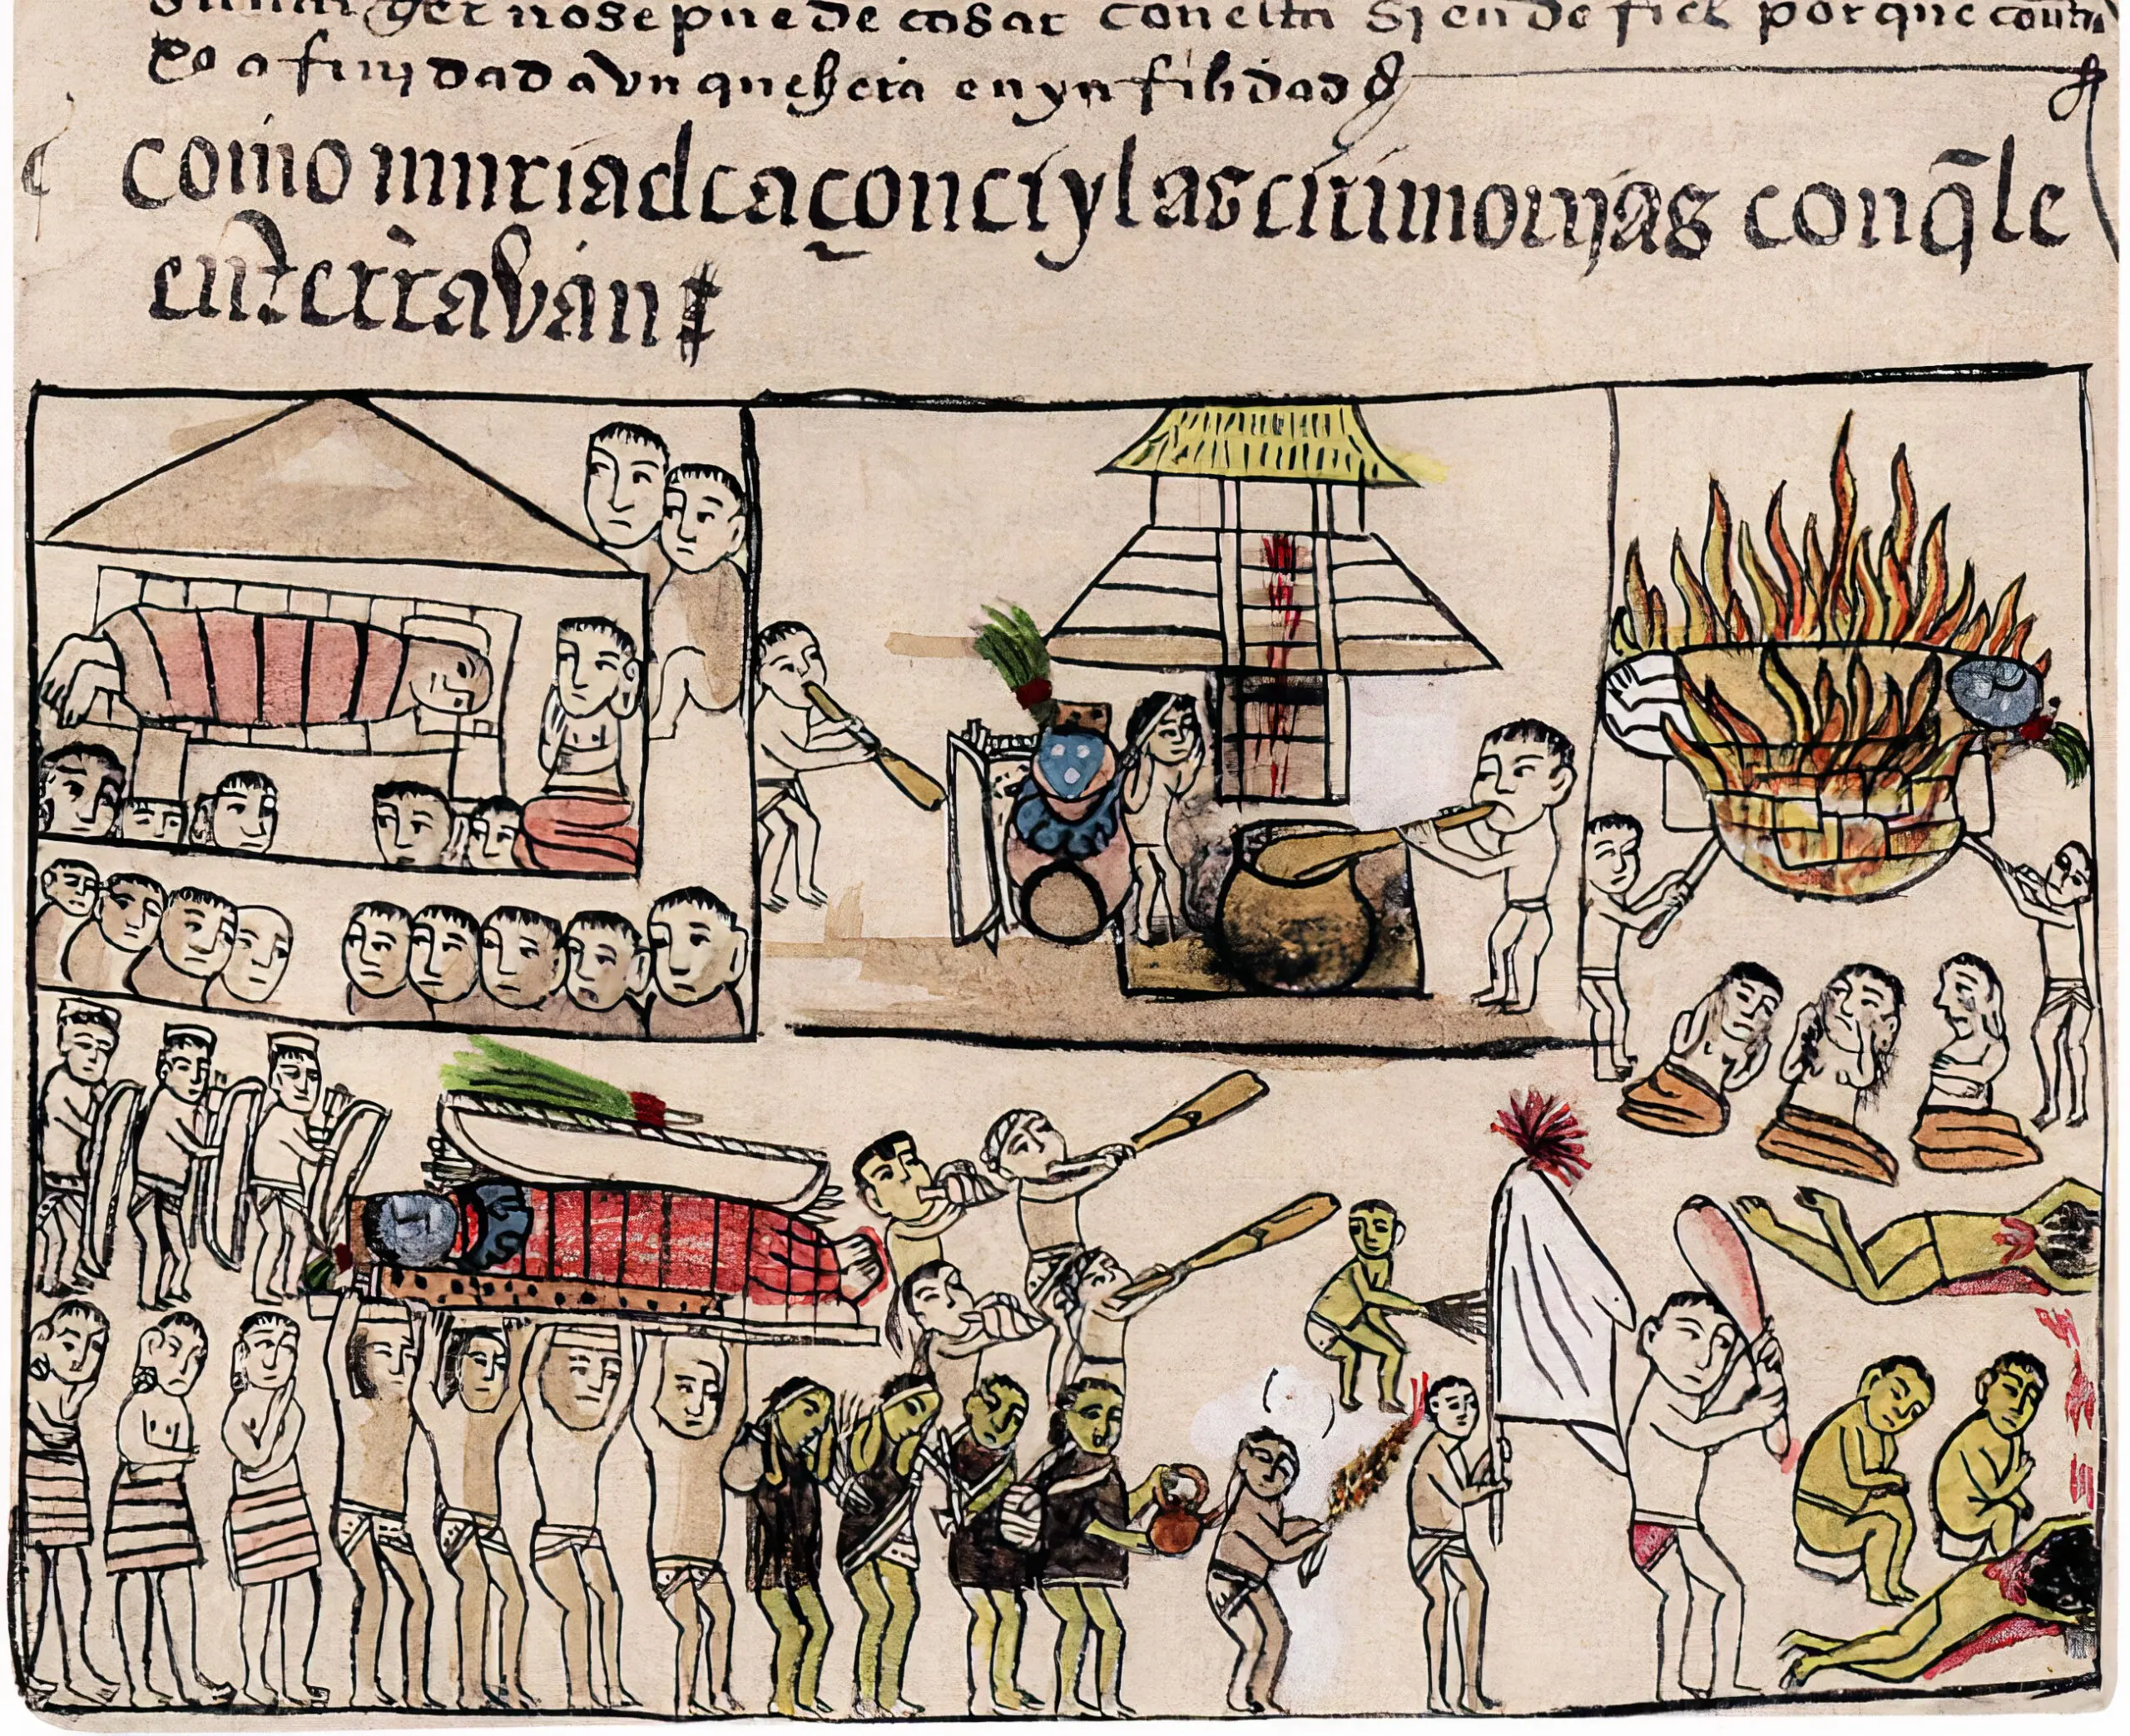 muger nosepuede casar con ella siendo fiel porque contra
xo afinjdad avn quehera en ynfilidad
como muria el caçonci y las cirimonjas con q̄ le
enterravan